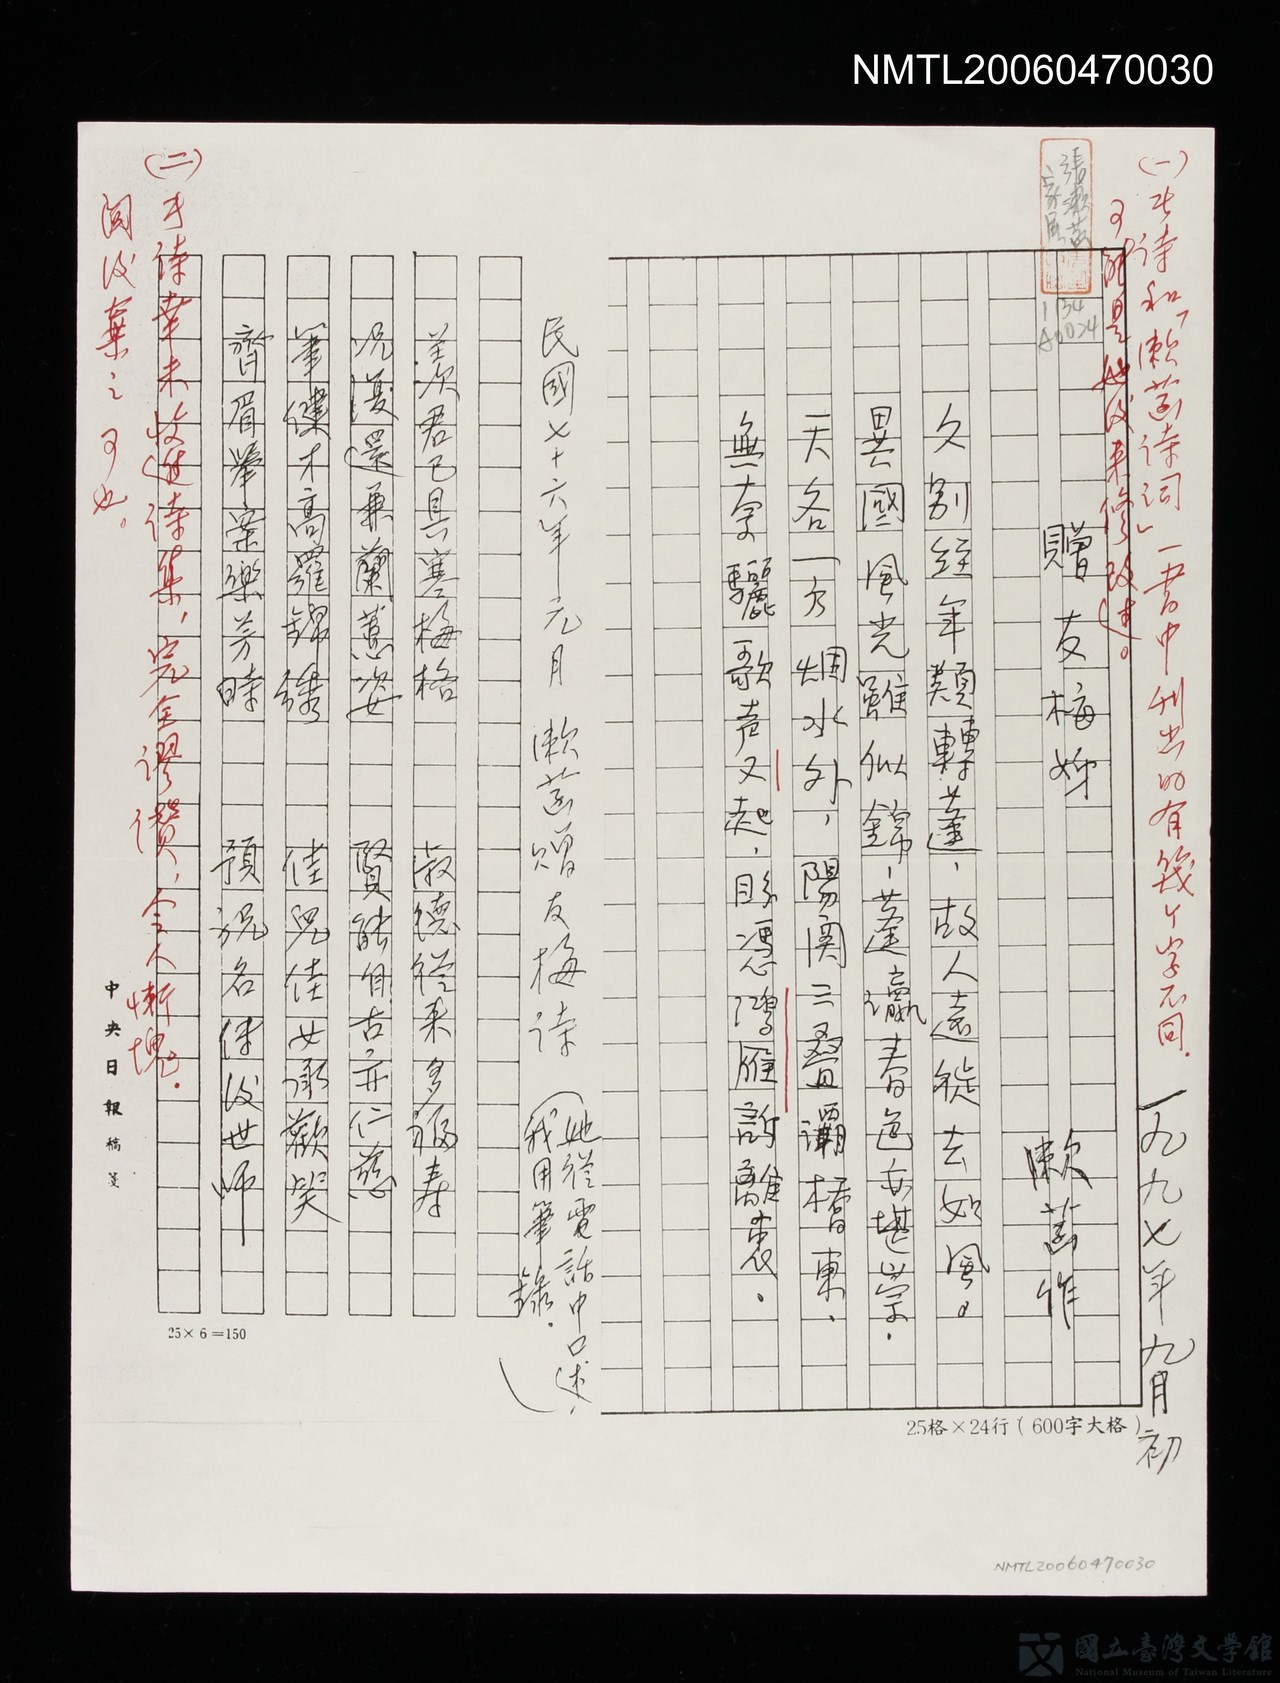 NMTL20060470030
(一)此詩和「漱菡詩詞」一書中刊出的有幾個字不同.
可能是她後來修改過。
一九九七年九月初
張漱菡
1134
A0024
贈友梅姊
漱菡作
久別經年類轉蓬,故人遠從去如風。
異國風光雖似錦,蓬瀛春色亦堪崇.
天各一方烟水外,陽関三疊灞橋東.
無奈驪歌声又起,賖憑鴻雁訴離衷.
民國七十六年元月 漱菡贈友梅詩(她從電話中口述,
我用筆錄.)
羨君已具寒梅格 淑德從來多福壽
况復還兼蘭蕙姿 賢能自古亦仁慈
筆健才高羅錦綉 佳兒佳女承歡笑
齊眉舉案樂芳時 預祝名傳後世師
(二)此詩幸未收進詩集,完全謬讚,令人慚愧.
閱後棄之可也。
中央日報稿箋
25×6=150
25格×24行(600字大格)
NMTL20060470030
國立臺灣文學館
National Museum of Taiwan Literature